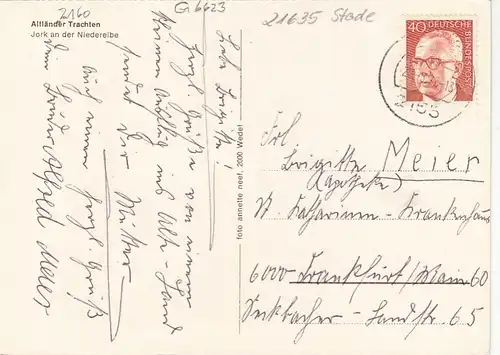 2160
G. 6623
21635 Stade
Altländer Trachten
Jork an der Niederelbe
40
DEUTSCHE BUNDESPOST
2155
Liebe Brigitte!
Herzl. Grüße von einem
kleinen Ausflug ins Alte-Land
sendet Dir
Mutter
Auch einen herzl. Gruß
Dein Bruder Alfred Meier
foto annette neef, 2000 Wedel
Frl.
Brigitte Meier
(Apotheke)
St. Katharinen-Krankenhaus
6000 Frankfurt/Main 60
Seckbacher-Landstr. 65